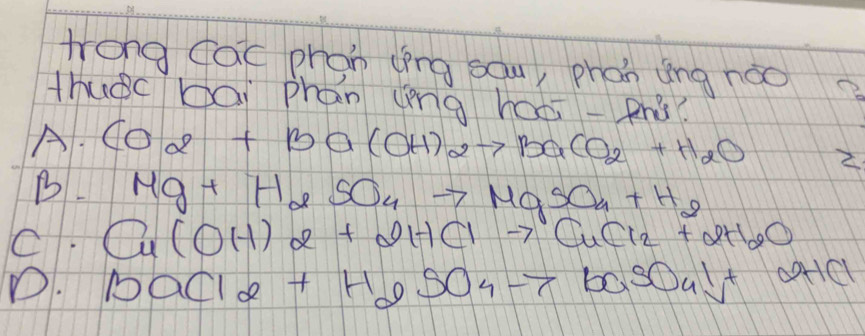 trong các phản ứng sau, phản ứng nào
thuộc bại phản ứng hoá - khử?
A. CO2 + Ba(OH)2 → BaCO2 + H2O
B. Mg + H2SO4 → MgSO4 + H2
C. Cu(OH)2 + 2HCl → CuCl2 + 2H2O
D. BaCl2 + H2SO4 → baSO4↓ + 2HCl